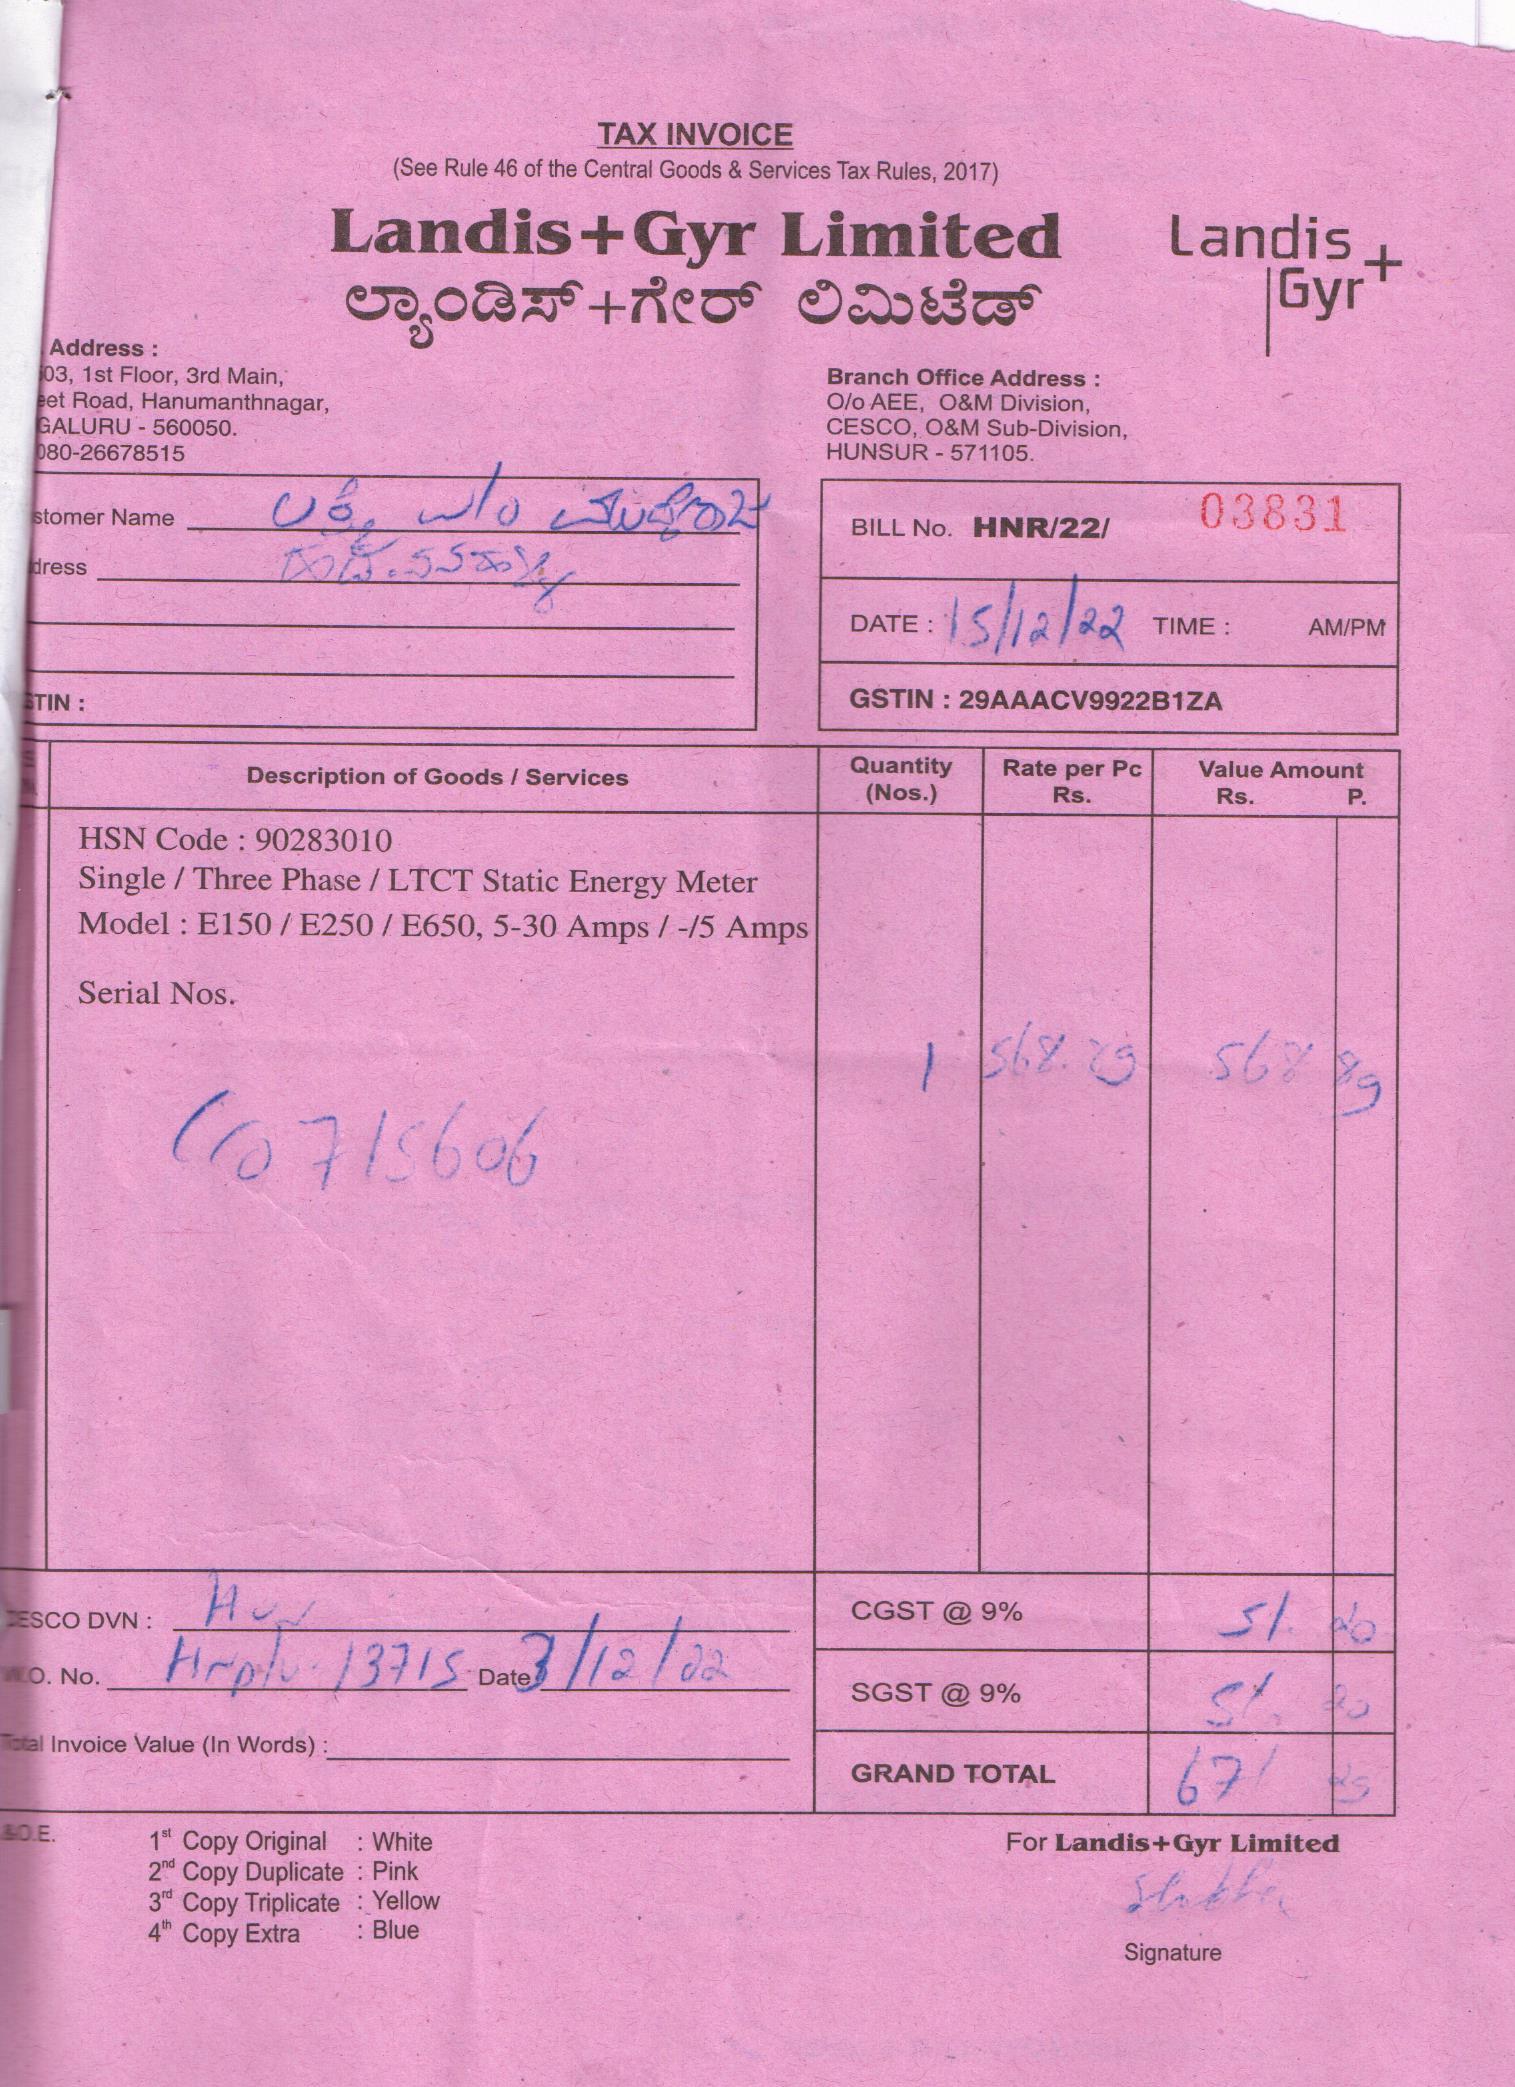 TAX INVOICE
(See Rule 46 of the Central Goods & Services Tax Rules, 2017)
Landis+Gyr Limited
ಲ್ಯಾಂಡಿಸ್+ಗೇರ್ ಲಿಮಿಟೆಡ್
Landis
Gyr+
Address :
03, 1st Floor, 3rd Main,
eet Road, Hanumanthnagar,
GALURU - 560050.
080-26678515
Branch Office Address :
O/o AEE, O&M Division,
CESCO, O&M Sub-Division,
HUNSUR - 571105.
stomer Name ಲಕ್ಷ್ಮಿ w/o
dress
STIN :
BILL No. HNR/22/ 03831
DATE : 15/12/22 TIME : AM/PM
GSTIN : 29AAACV9922B1ZA
Description of Goods / Services
Quantity (Nos.)
Rate per Pc Rs.
Value Amount Rs. P.
HSN Code : 90283010
Single / Three Phase / LTCT Static Energy Meter
Model : E150 / E250 / E650, 5-30 Amps / -/5 Amps
Serial Nos.
1 568.89 568 89
715606
CESCO DVN :
W.O. No. 13715 Date 3/12/22
Total Invoice Value (In Words) :
CGST @ 9% 51. 20
SGST @ 9% 51. 20
GRAND TOTAL 671 29
&O.E.
1st Copy Original : White
2nd Copy Duplicate : Pink
3rd Copy Triplicate : Yellow
4th Copy Extra : Blue
For Landis+Gyr Limited
Signature